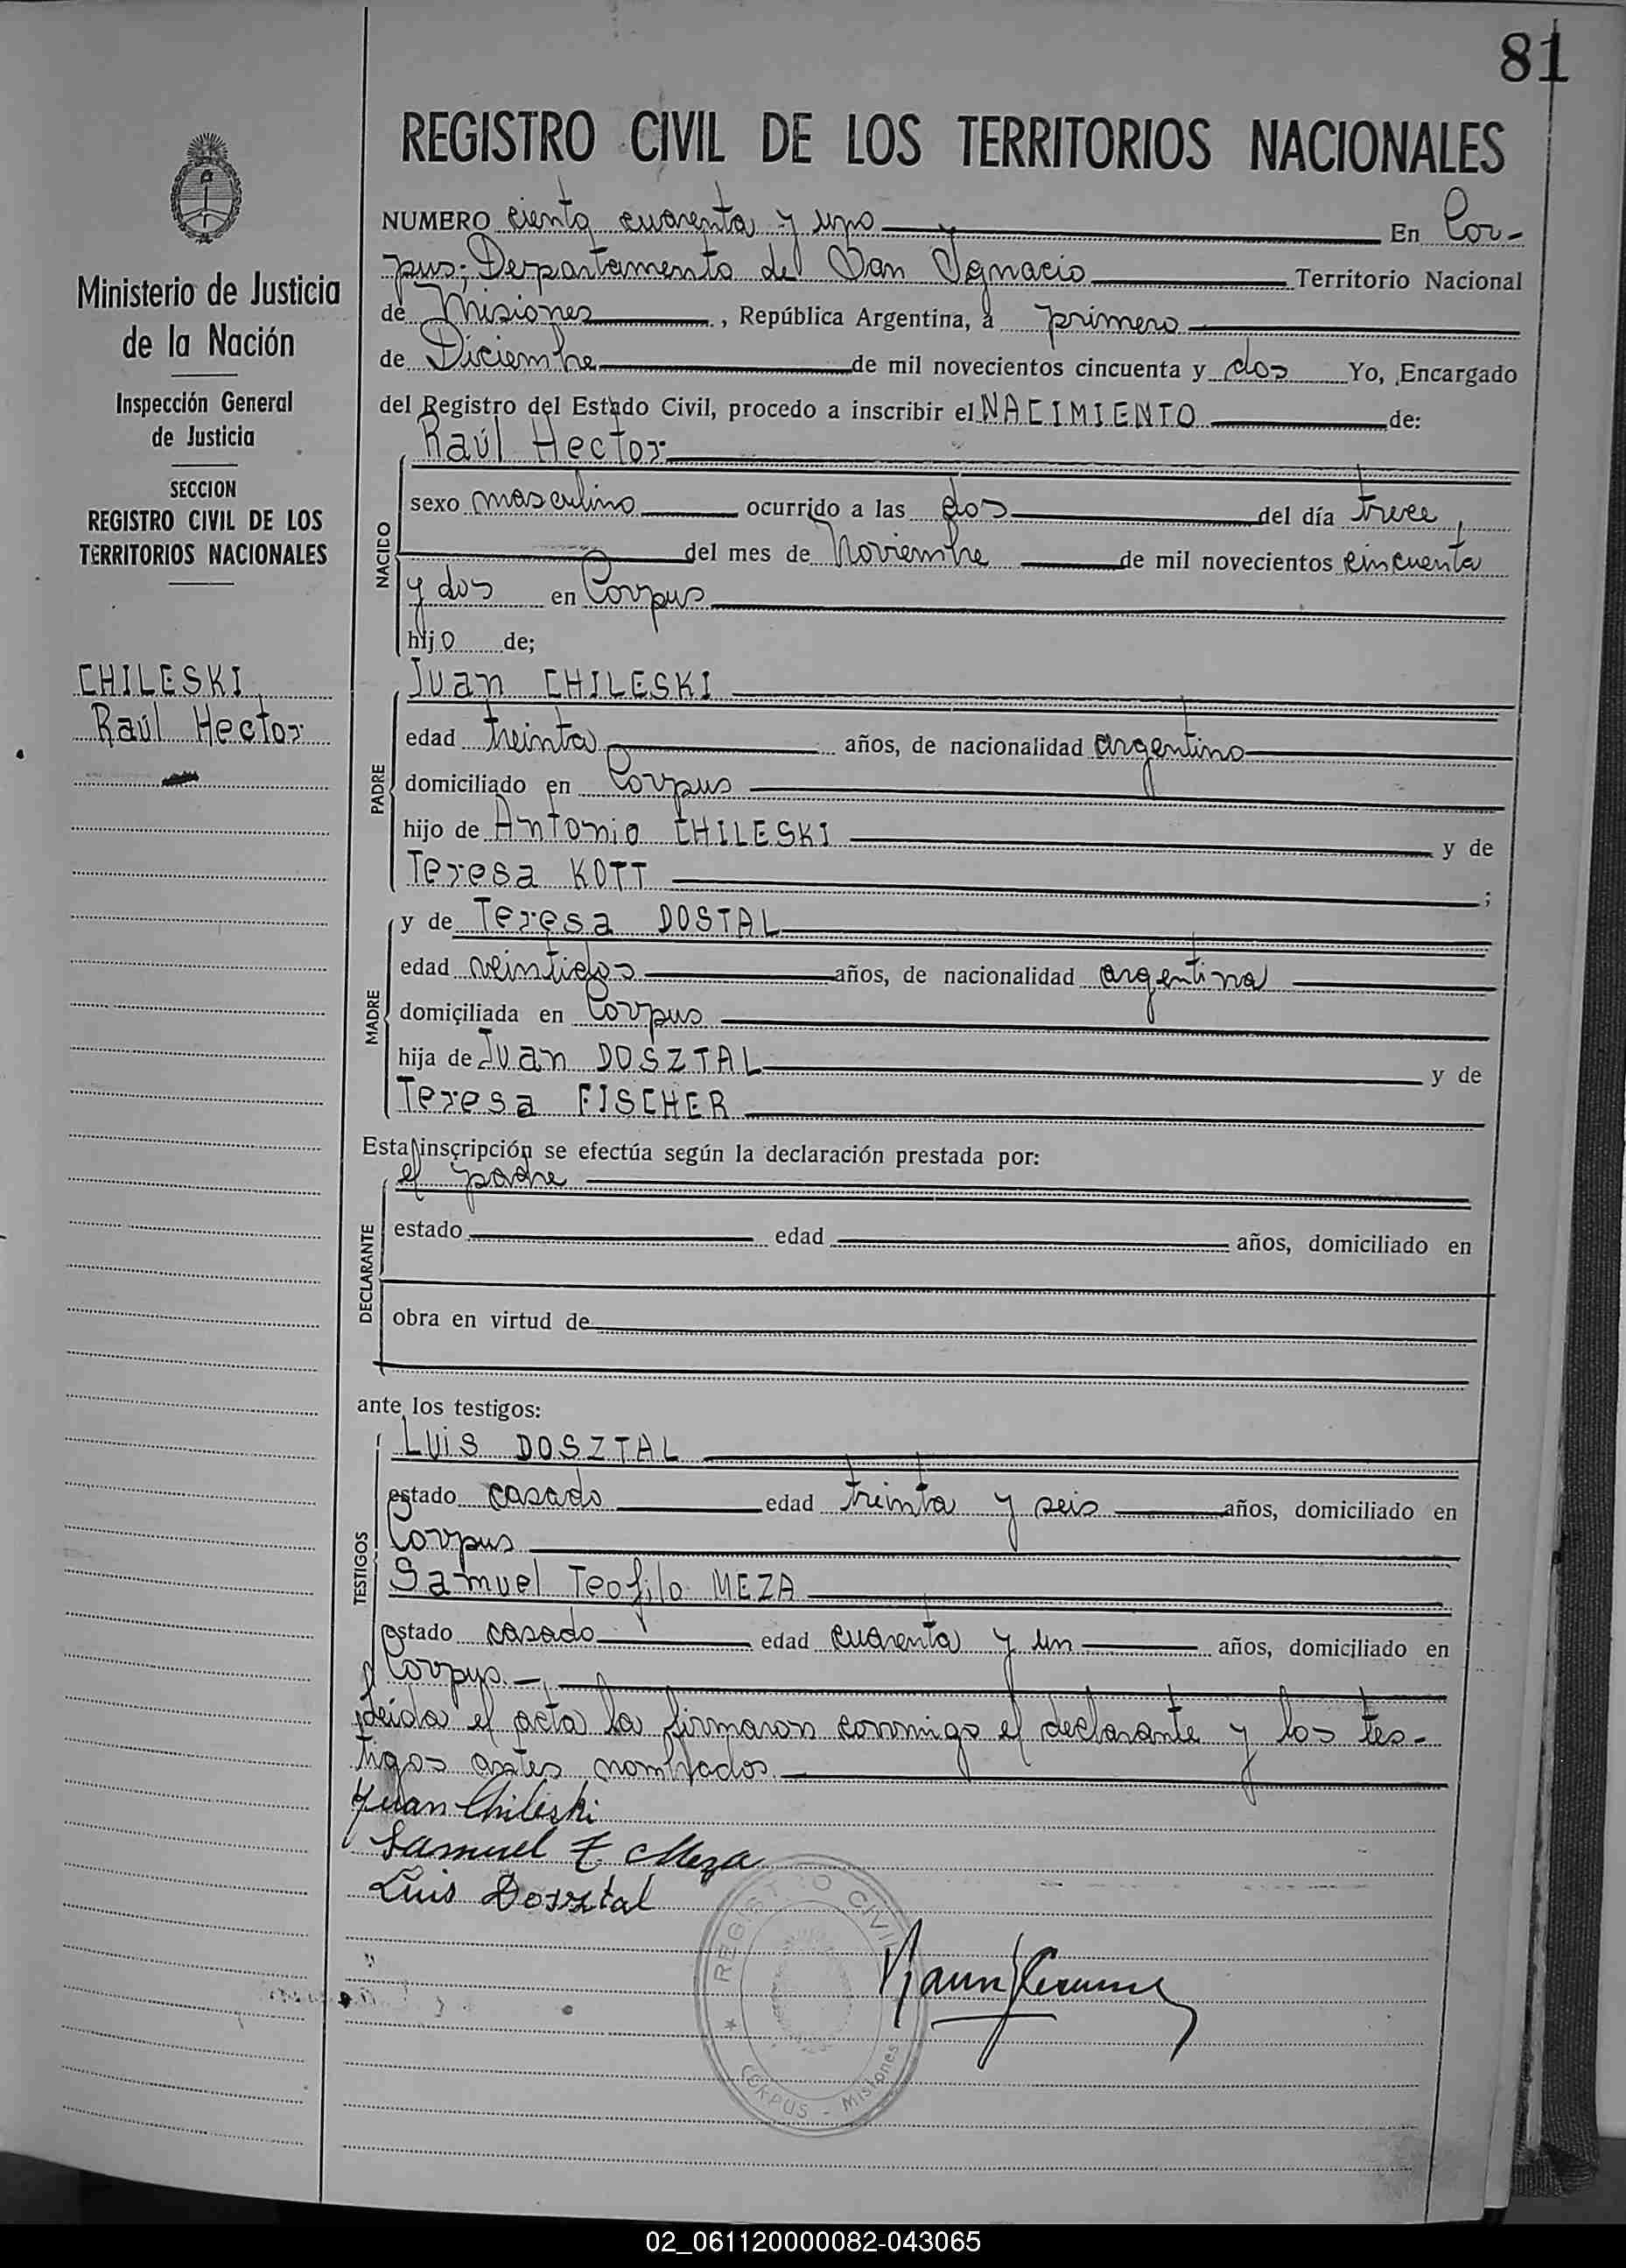 81
REGISTRO CIVIL DE LOS TERRITORIOS NACIONALES
Ministerio de Justicia
de la Nación
Inspección General
de Justicia
SECCION
REGISTRO CIVIL DE LOS
TERRITORIOS NACIONALES
CHILESKI
Raúl Hector
NUMERO ciento cuarenta y uno En Cor-
pus, Departamento de San Ignacio Territorio Nacional
de Misiones, República Argentina, a primero
de Diciembre de mil novecientos cincuenta y dos Yo, Encargado
del Registro del Estado Civil, procedo a inscribir el NACIMIENTO de:
NACIDO
Raúl Hector
sexo masculino ocurrido a las dos del día trece,
del mes de Noviembre de mil novecientos cincuenta
y dos en Corpus
hijo de;
PADRE
Juan CHILESKI
edad treinta años, de nacionalidad argentino
domiciliado en Corpus
hijo de Antonio CHILESKI y de
Teresa KOTT ;
MADRE
y de Teresa DOSTAL
edad veintidos años, de nacionalidad argentina
domiciliada en Corpus
hija de Juan DOSZTAL y de
Teresa FISCHER
Esta inscripción se efectúa según la declaración prestada por:
DECLARANTE
el padre
estado edad años, domiciliado en
obra en virtud de
ante los testigos:
TESTIGOS
Luis DOSZTAL
estado casado edad treinta y seis años, domiciliado en
Corpus
Samuel Teofilo MEZA
estado casado edad cuarenta y un años, domiciliado en
Corpus.-
Leida el acta la firmaron conmigo el declarante y los tes-
tigos antes nombrados.
Juan Chileski
Samuel T. Meza
Luis Dosztal
REGISTRO CIVIL
CORPUS - Misiones
02_061120000082-043065